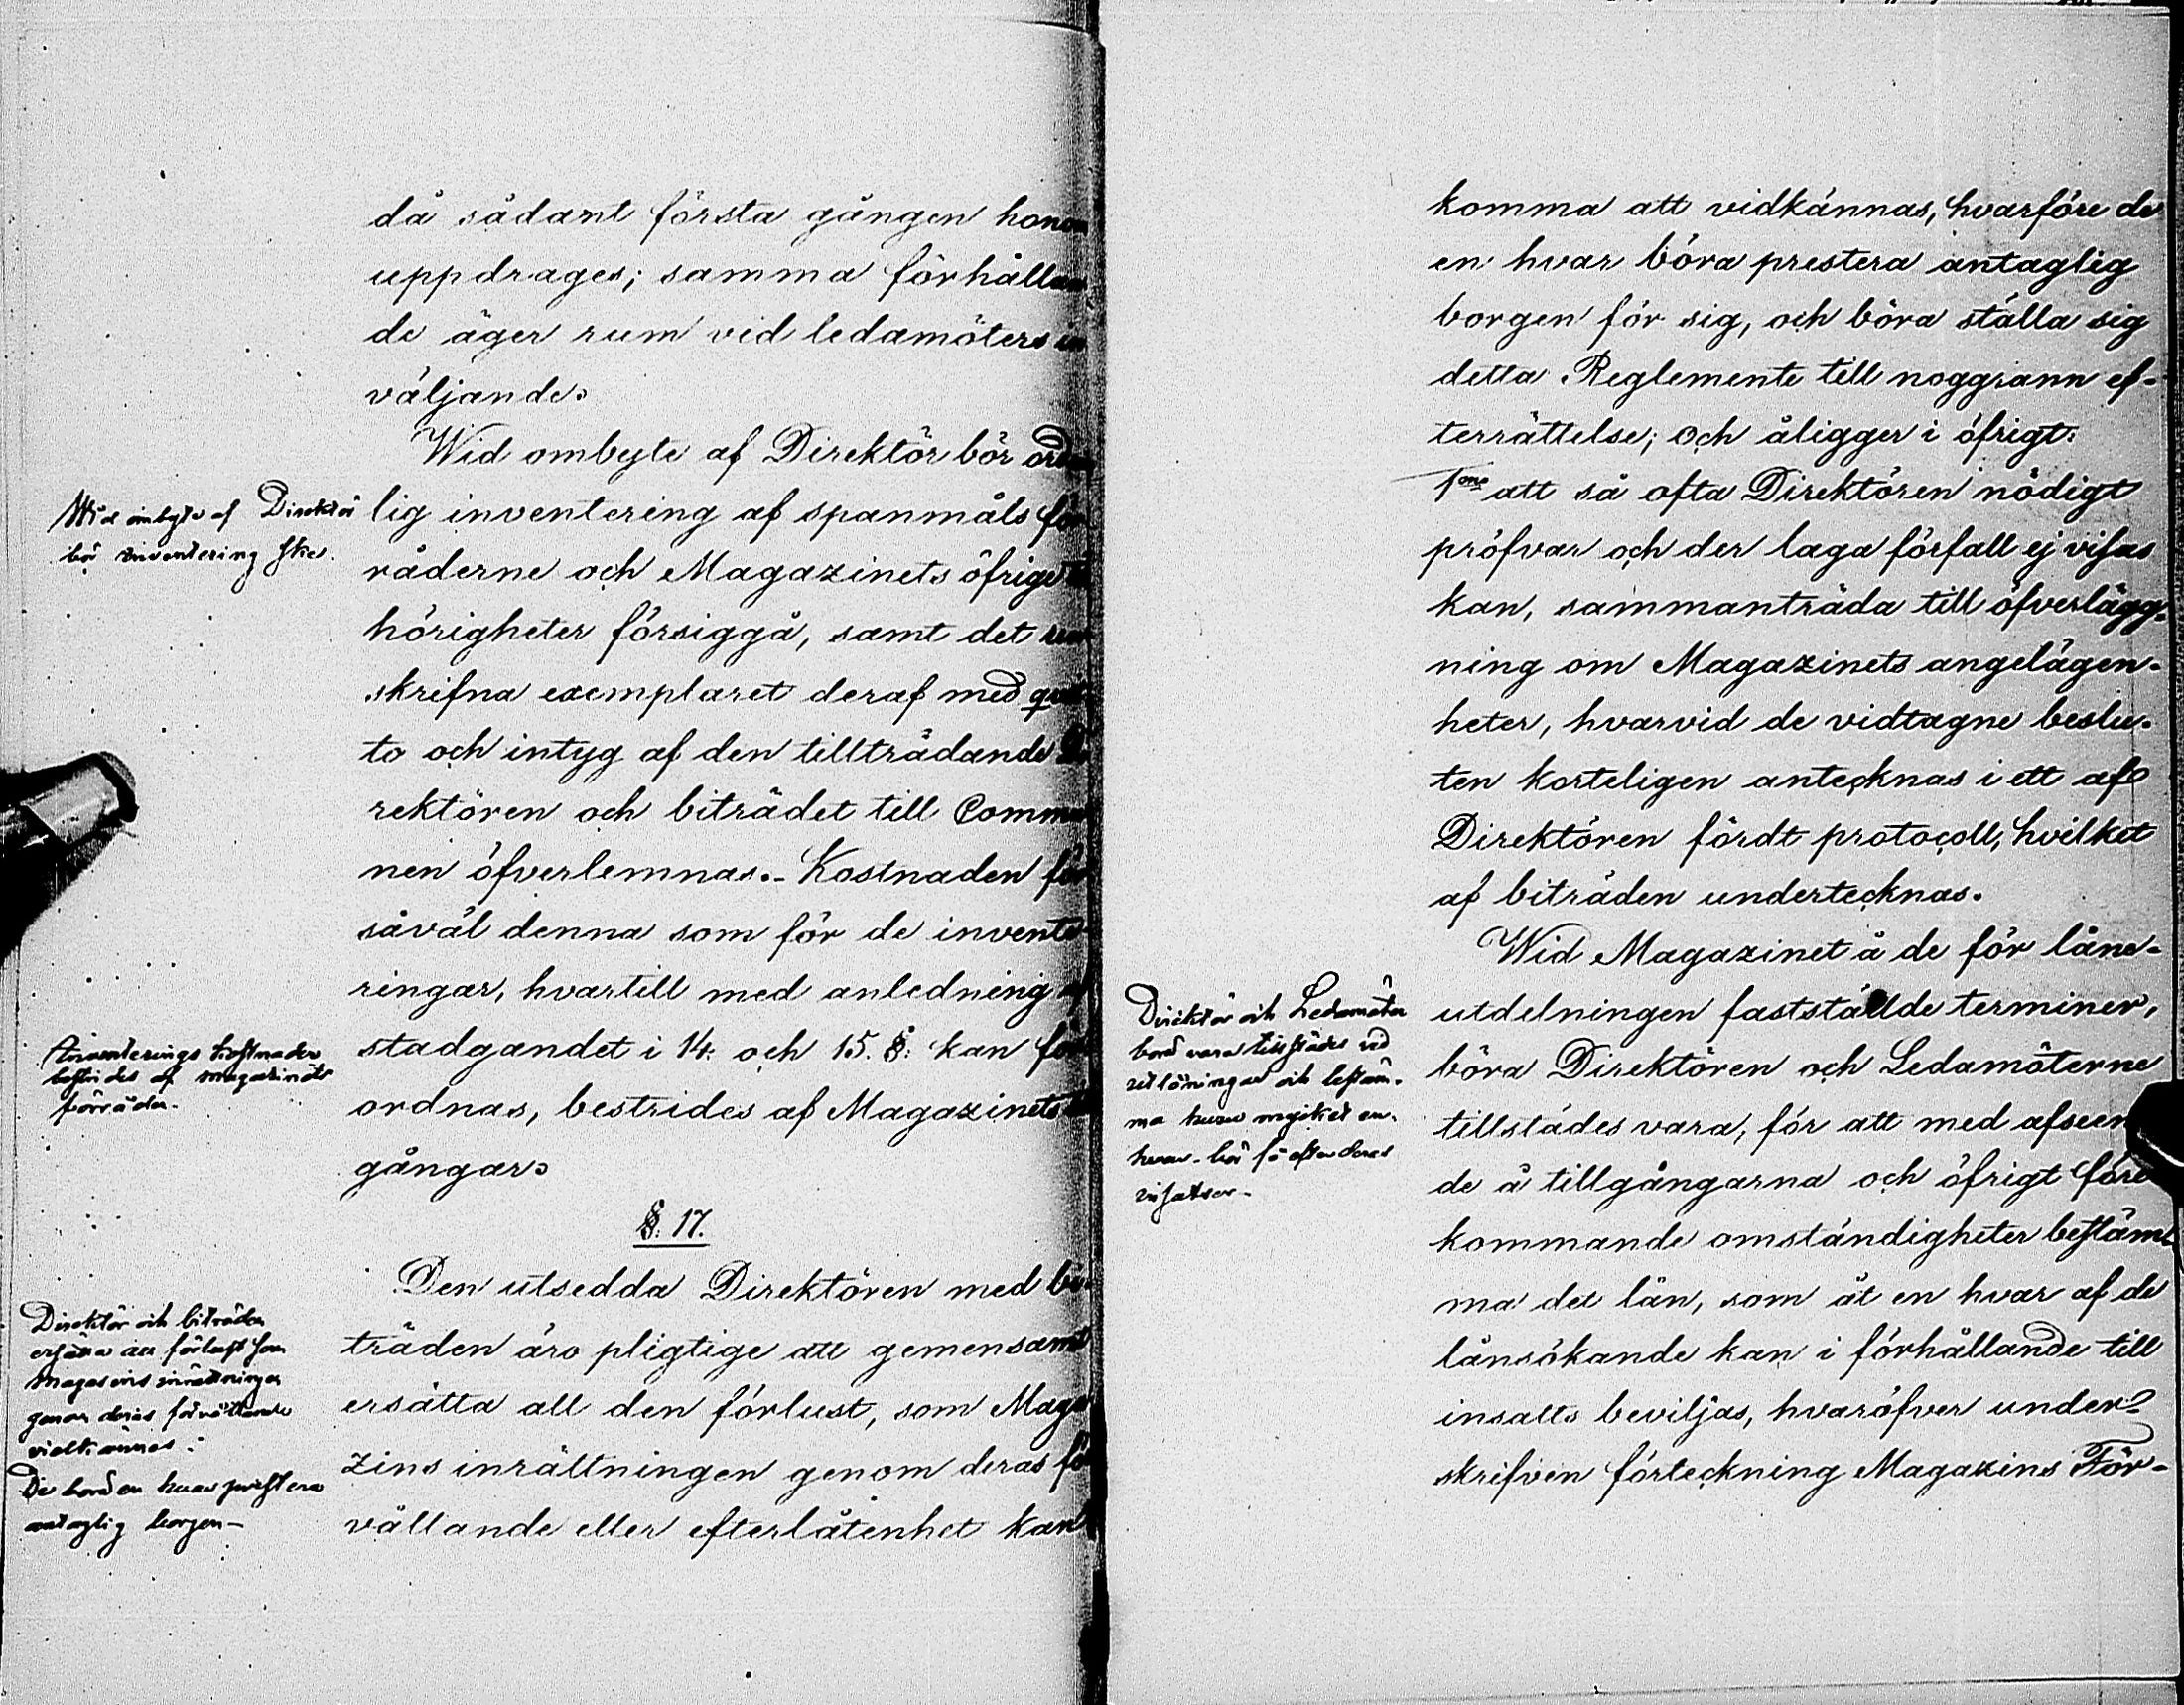 då sådant första gången honom
uppdrages; samma förhållan
de äger rum vid ledamöters in
väljande.
Wid ombyte af Direktör bör orden
lig inventering af spanmåls för
råderne och Magazinets öfrige
hörigheter försiggå, samt det
skrifna exemplaret deraf med
to och intyg af den tillträdande Di
rektören och biträdet till Commu
nen öfverlemnas.- Kostnaden för
såväl denna som för de invente
ringar, hvartill med anledning af
stadgandet i 14. och 15. §: kan för
ordnas, bestrides af Magazinets
gångar.
§: 17.
Den utsedda Direktören med bi
träden äro pligtige att gemensamt
ersätta all den förlust, som Maga
zins inrättningen genom deras för
vållande eller efterlåtenhet kan
Wid ombyte af Direktör
bör inventering ske.
Inventerings kostnaden
bestrides af magazinets
förråder.
Direktör och biträden
ersätta all förlust som
Magasins inrättningen
genom deras förvållande
vidkännes.
De bord en hvar prestera
antaglig borgen-
komma att vidkännas, hvarföre de
en hvar böra prestera antaglig
borgen för sig, och böra ställa sig
detta Reglemente till noggrann ef-
terrättelse; och åligger i öfrigt:
1mo att så ofta Direktören nödigt
pröfvar och der laga förfall ej visas
kan, sammanträda till öfverlägg-
ning om Magazinets angelägen-
heter, hvarvid de vidtagne beslu-
ten korteligen antecknas i ett af
Direktören fördt protocoll, hvilket
af biträden undertecknas.
Wid Magazinet å de för låne-
utdelningen fastställde terminer,
böra Direktören och Ledamöterne
tillstädes vara, för att med afseen
de å tillgångarna och öfrigt före
kommande omständigheter bestäm-
ma det lån, som åt en hvar af de
lånsökande kan i förhållande till
insatts beviljas, hvaröfver under-
skrifven förteckning Magazins För-
Direktör och Ledamöter
bord vara tillstädes vid
utlöningar och bestäm-
ma huru mycket en-
hvar bör få efter deras
insatser.